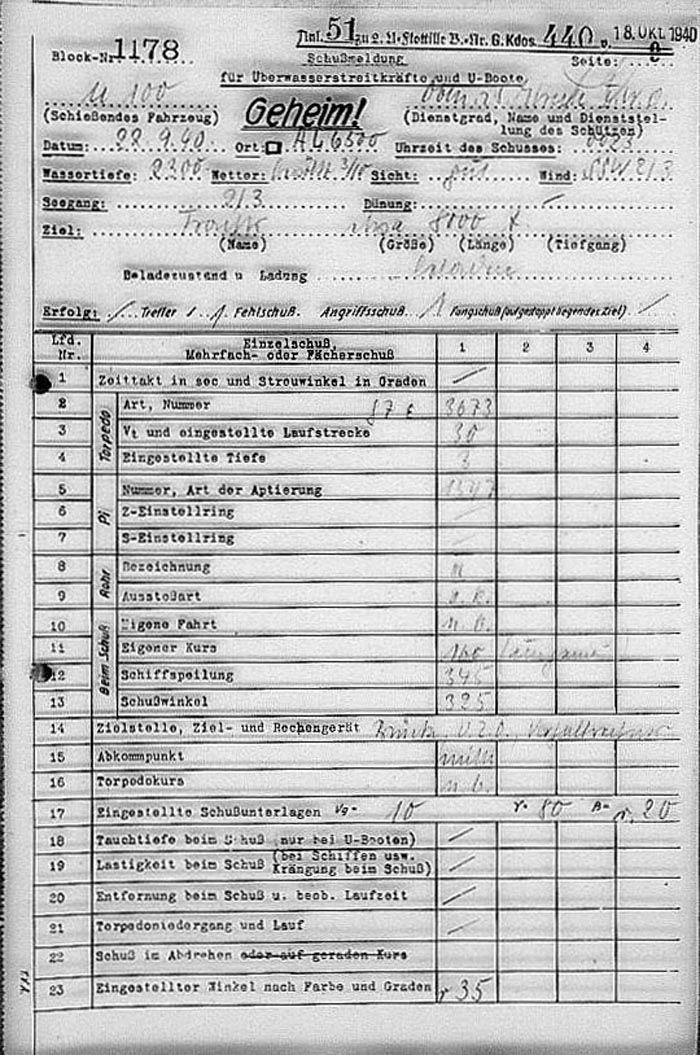 Anl. 51 zu 2. U-Flottille B.-Nr. G.Kdos. 440 v. 18. OKT. 1940
Block-Nr. 1178
Schußmeldung
Seite:
für Überwasserstreitkräfte und U-Boote
U 100
(Schießendes Fahrzeug)
Geheim!
(Dienstgrad, Name und Dienststel-
lung des Schützen)
Datum: 22.9.40. Ort: AL 6500 Uhrzeit des Schusses: 0023
Wassertiefe: 2300 Wetter: 3/10 Sicht: gut Wind: SSW 2/3
Seegang: 2/3 Dünung: /
Ziel: 8000 t
(Name) (Größe) (Länge) (Tiefgang)
Beladezustand u Ladung beladen
Erfolg: / Treffer / 1 Fehlschuß. Angriffsschuß 1 Fangschuß (auf gestoppt liegendes Ziel) /
Lfd. Nr. Einzelschuß, Mehrfach- oder Fächerschuß 1 2 3 4
1 Zeittakt in sec und Streuwinkel in Graden /
Torpedo
2 Art, Nummer G7e 3673
3 Vt und eingestellte Laufstrecke 30
4 Eingestellte Tiefe 3
Pi
5 Nummer, Art der Aptierung
6 Z-Einstellring /
7 S-Einstellring /
Rohr
8 Bezeichnung
9 Ausstoßart
Beim Schuß
10 Eigene Fahrt n.b.
11 Eigener Kurs 160
12 Schiffspeilung 345
13 Schußwinkel 325
14 Zielstelle, Ziel- und Rechengerät Brücke, U.Z.O., Vorhaltrechner
15 Abkommpunkt mitte
16 Torpedokurs n.b.
17 Eingestellte Schußunterlagen Vg= 10 r= 80 B= r. 20
18 Tauchtiefe beim Schuß (nur bei U-Booten) /
19 Lastigkeit beim Schuß (bei Schiffen usw. Krängung beim Schuß) /
20 Entfernung beim Schuß u. beob. Laufzeit /
21 Torpedoniedergang und Lauf /
22 Schuß im Abdrehen oder auf geraden Kurs
23 Eingestellter Winkel nach Farbe und Graden r 35